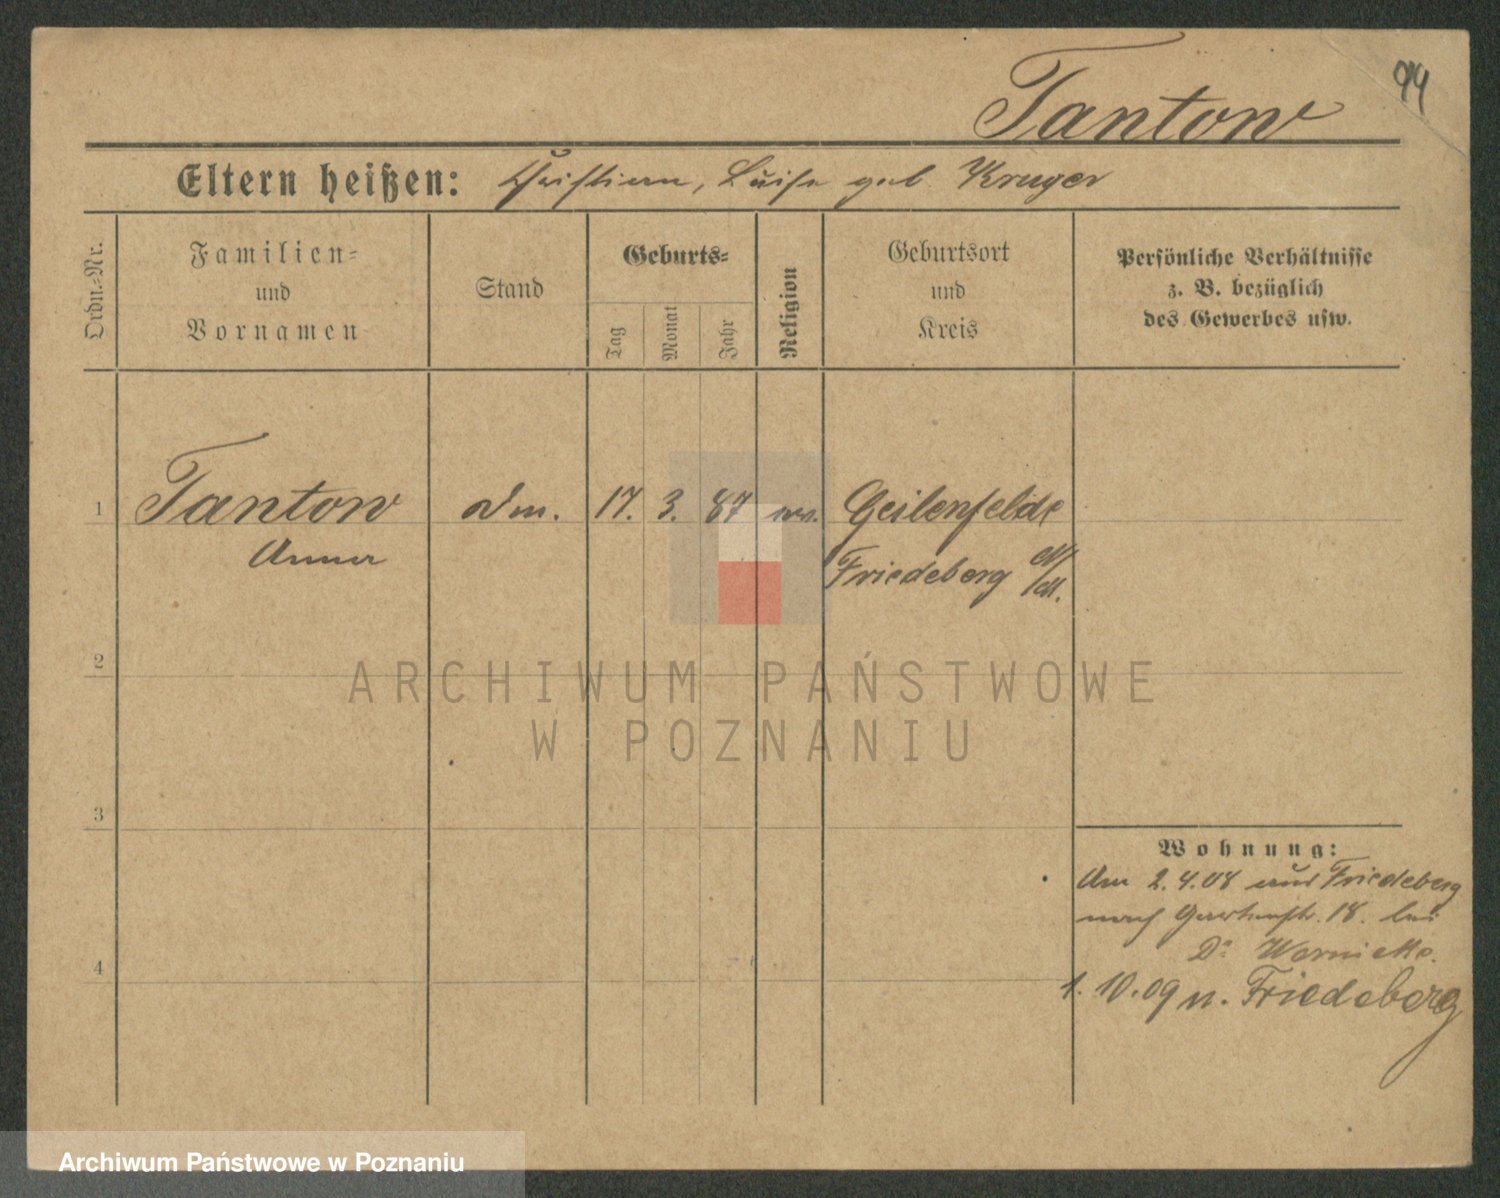 94
Tantow
Eltern heißen: Christian, Luise geb. Kruger
Ordn.-Nr.
Familien-
und
Vornamen
Stand
Geburts-
Tag
Monat
Jahr
Religion
Geburtsort
und
Kreis
Persönliche Verhältnisse
z. B. bezüglich
des Gewerbes usw.
1 Tantow 17. 3. 87 Geilenfelde
Anna
Friedeberg N/M.
2
ARCHIWUM PAŃSTWOWE
W POZNANIU
3
Wohnung:
Am 2.4.08 aus Friedeberg
nach Gartenstr. 18. bei
Dr. Wernicke.
4
1.10.09 n. Friedeberg
Archiwum Państwowe w Poznaniu